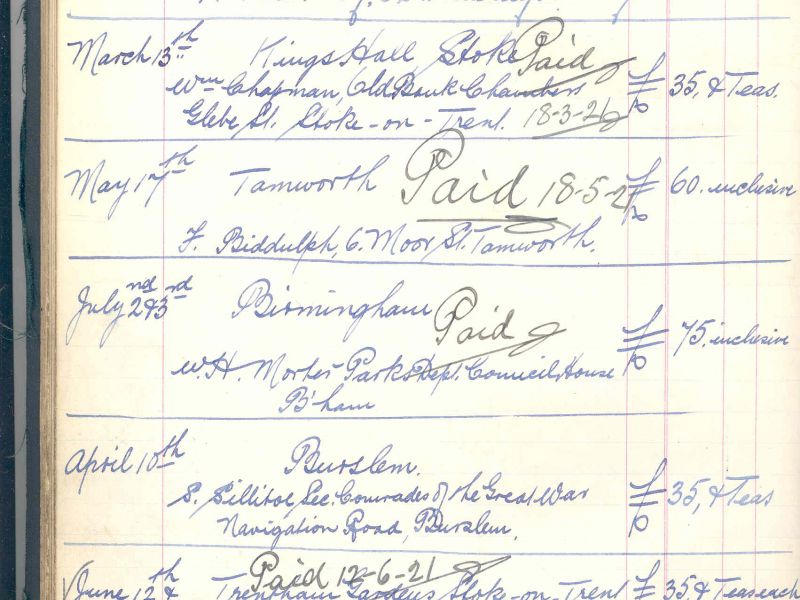 March 13th Kings Hall Stoke Paid
Wm Chapman, Old Bank Chambers £ 35, & Teas.
Glebe St. Stoke-on-Trent. 18-3-21
May 17th Tamworth Paid 18-5-21 £ 60. inclusive
F. Biddulph, 6. Moor St. Tamworth.
July 2nd & 3rd Birmingham Paid £ 75. inclusive
W.H. Morter Parks Dept. Council House
B'ham
April 10th Burslem.
S. Sillitoe, Sec. Comrades of the Great War £ 35, & Teas
Navigation Road, Burslem.
Paid 12-6-21
June 12th & Trentham Gardens Stoke-on-Trent £ 35. & Teas each